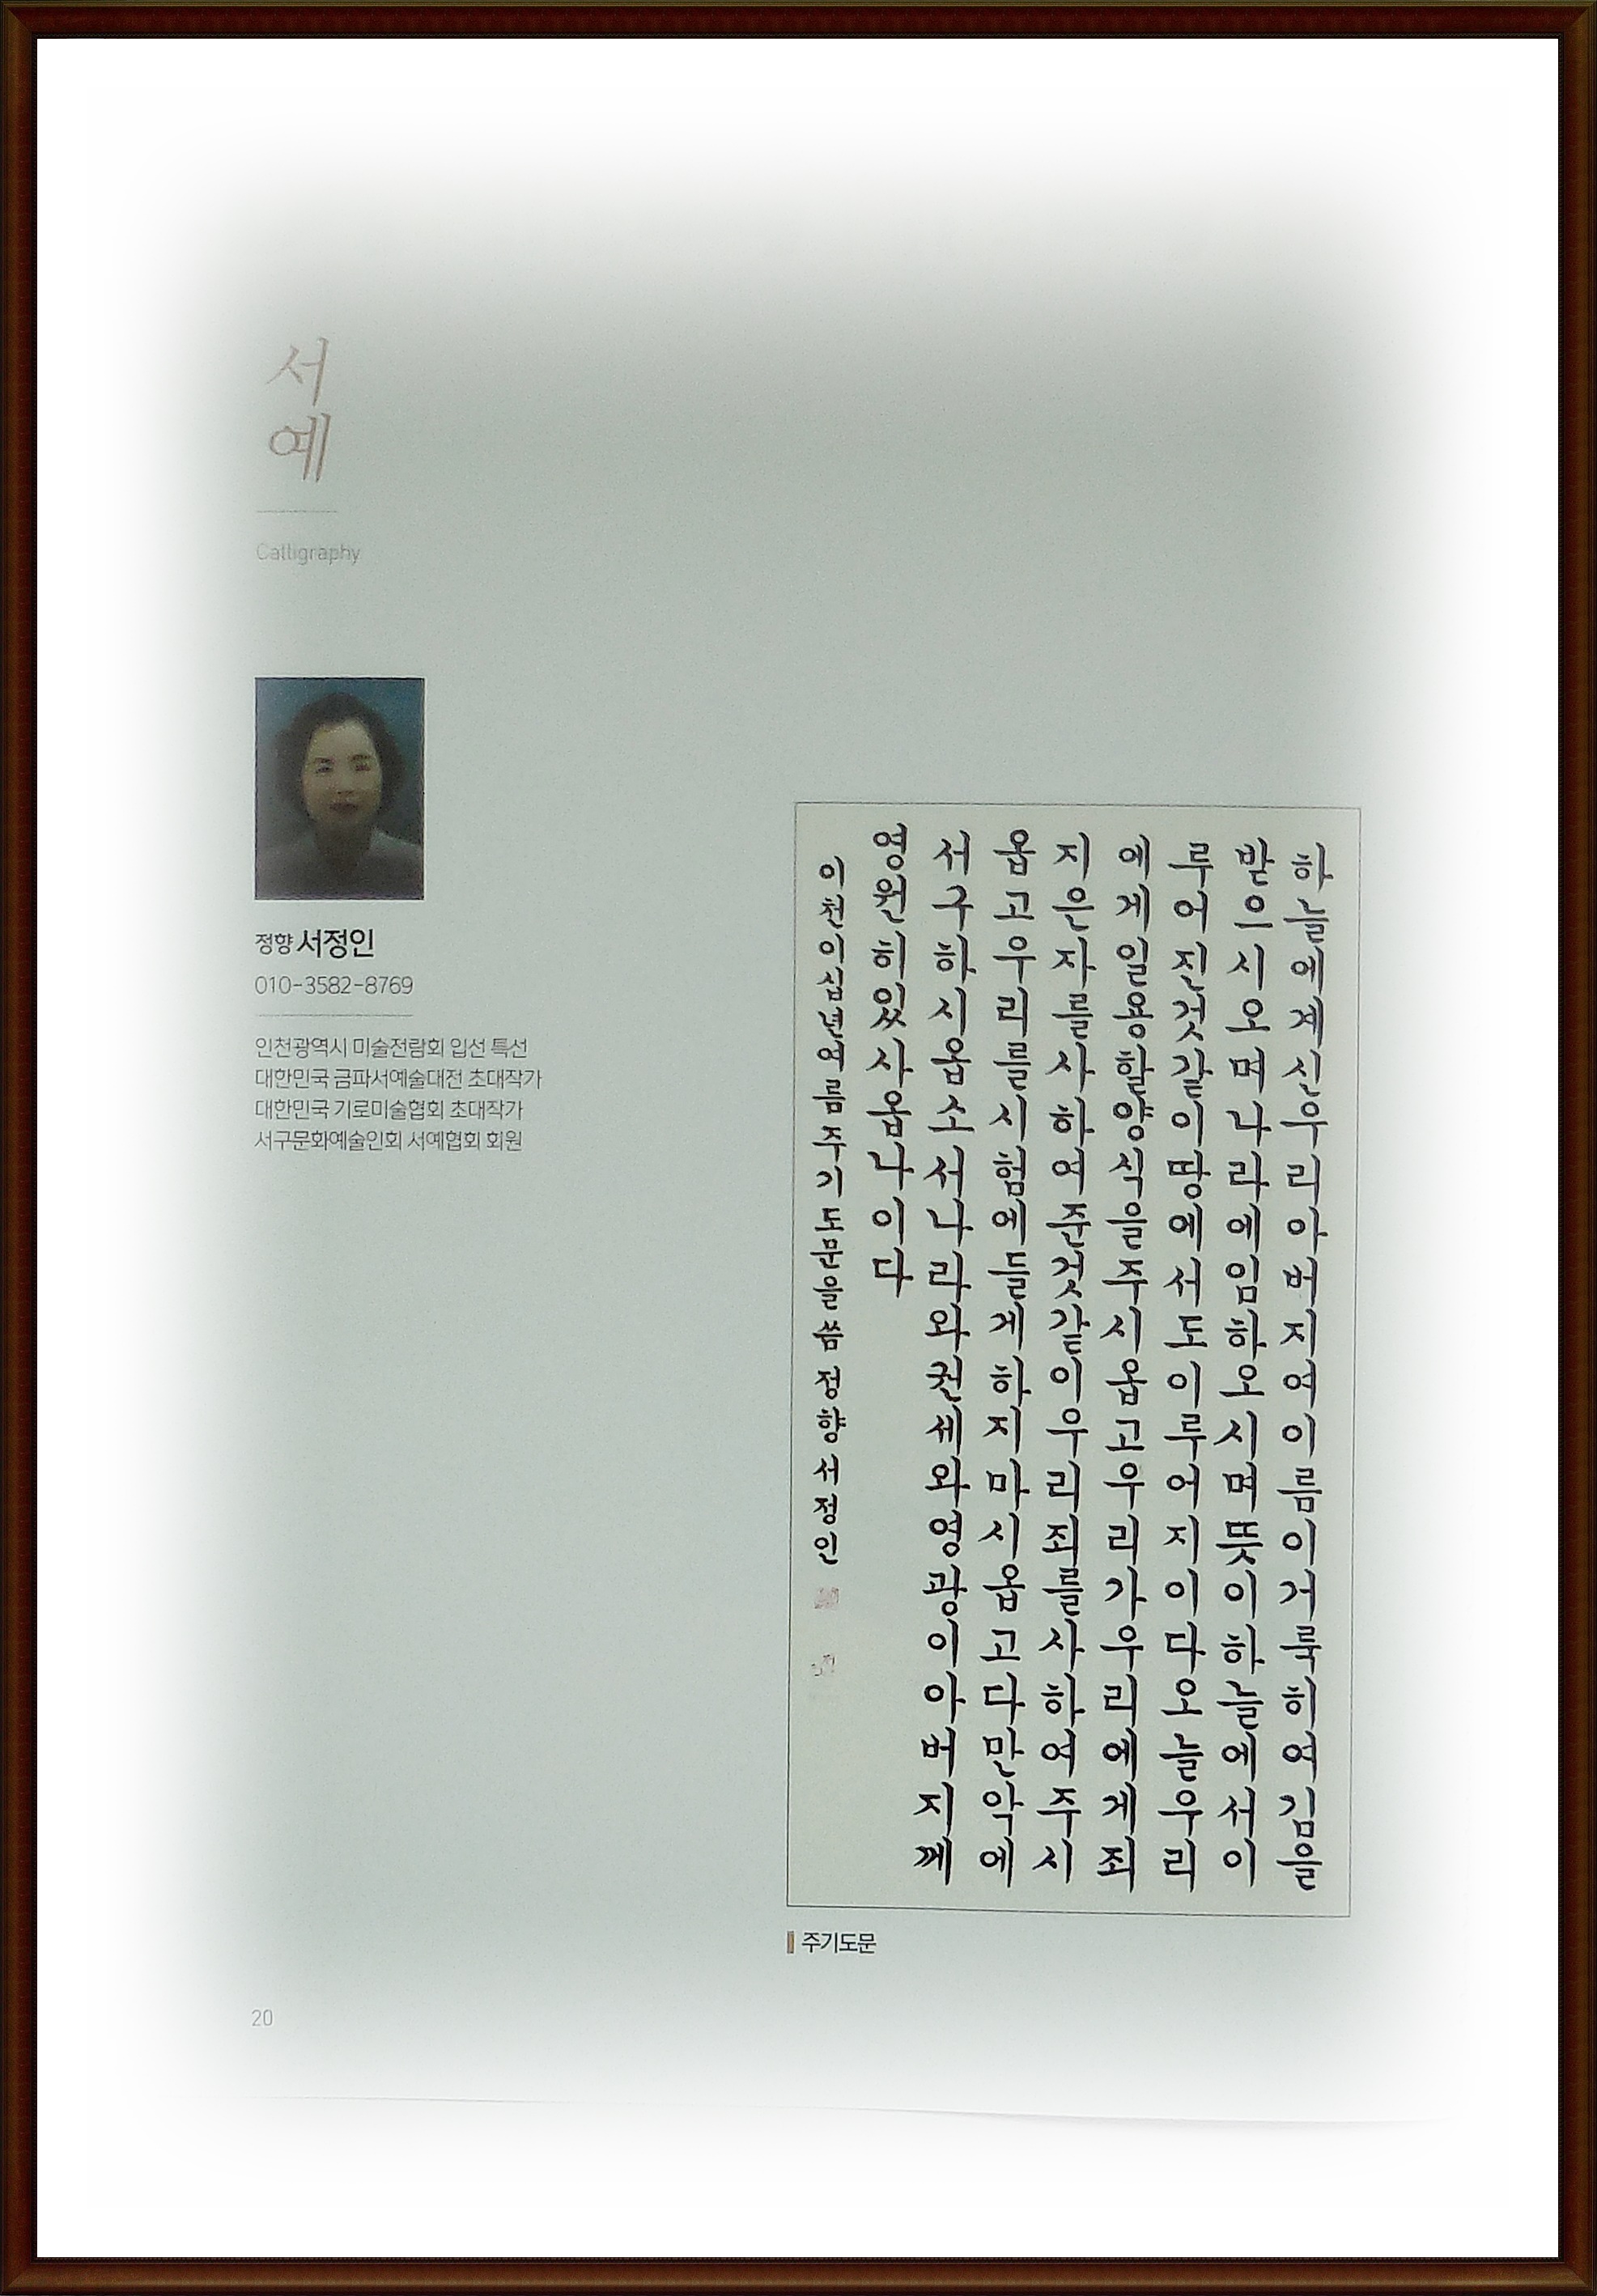 서
예
Calligraphy
정향 서정인
010-3582-8769
인천광역시 미술전람회 입선 특선
대한민국 금파서예술대전 초대작가
대한민국 기로미술협회 초대작가
서구문화예술인회 서예협회 회원
하늘에계신우리아버지여이름이거룩히여김을
받으시오며나라에임하오시며뜻이하늘에서이
루어진것같이땅에서도이루어지이다오늘우리
에게일용할양식을주시옵고우리가우리에게죄
지은자를사하여준것같이우리죄를사하여주시
옵고우리를시험에들게하지마시옵고다만악에
서구하시옵소서나라와권세와영광이아버지께
영원히있사옵나이다
이천이십년여름 주기도문을 씀 정향 서정인
주기도문
20